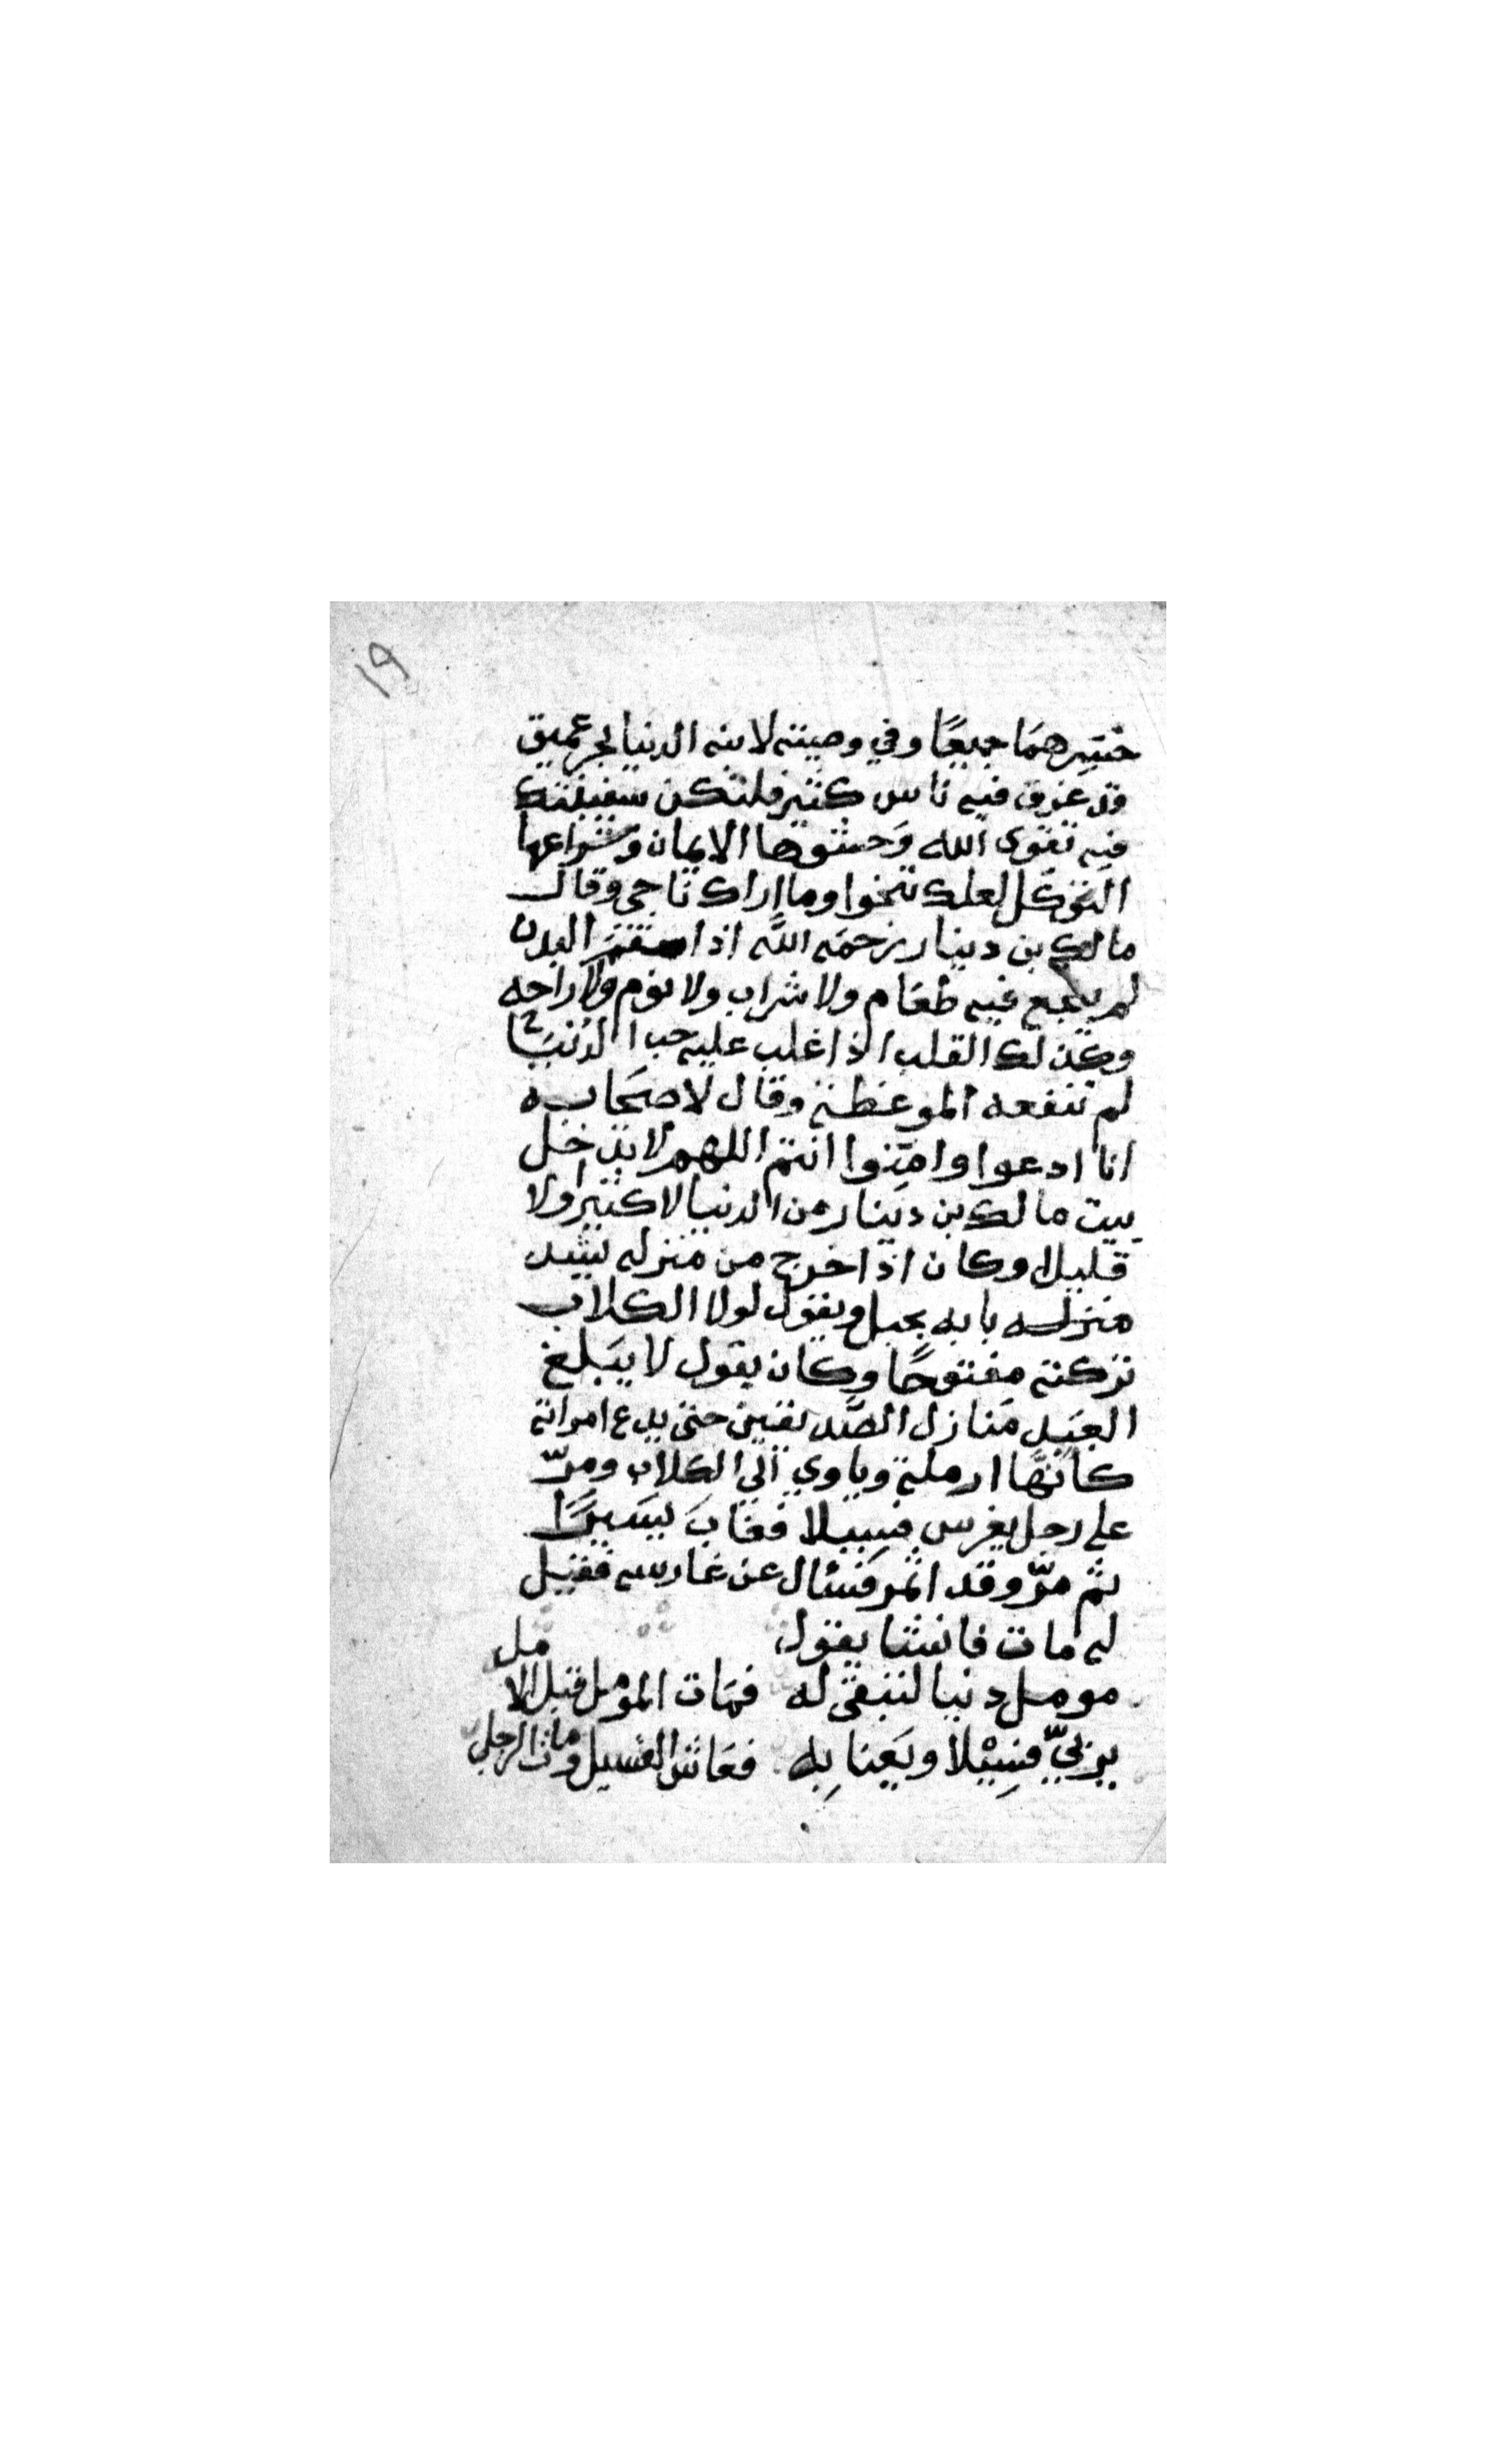 ١٩
خيرهمَا جميعًا وفي وصيته لابنه الدنيا بحر عميق
قد غرق فيه ناس كثير فلتكن سفينتك
فيه تقوى الله وَحشوها الايمان وشراعها
التوكل لعلك تنجوا وما اراك ناجي وقال
مالك بن دينار رحمَه اللَّه اذا سقم البدن
لم ينجع فيه طعَام ولا شراب ولا نوم ولا راحه
وكذلك القلب اذا غلب عليه حب الدُنيَا
لم تنفعه الموعظة وقال لاصحَابه
انا ادعوا وامِّنوا انتم اللهم لا يدخل
بيت مالك بن دينار من الدنيا لا كثيرا ولا
قليلا وكان اذا خرج من منزله يشد
منزله بابه بحبل ويقول لولا الكلاب
تركته مفتوحًا وكان يقول لا يبَلغ
العبَد مَنازل الصَّديقين حتى يدع امراته
كانهَّا ارملة وياوي الى الكلاب ومرّ
على رجل يغرس فسيلا فغابَ يسَيرًا
ثم مرّ وقد اثمر فسئال عن غارسه فقيل
له مات فانشا يقول
مومل دنيا لتبقى له فمَات المومل قبل الامل
يربيّ فسِيْلا ويَعنا بِه فعَاش الفسيل ومات الرجل